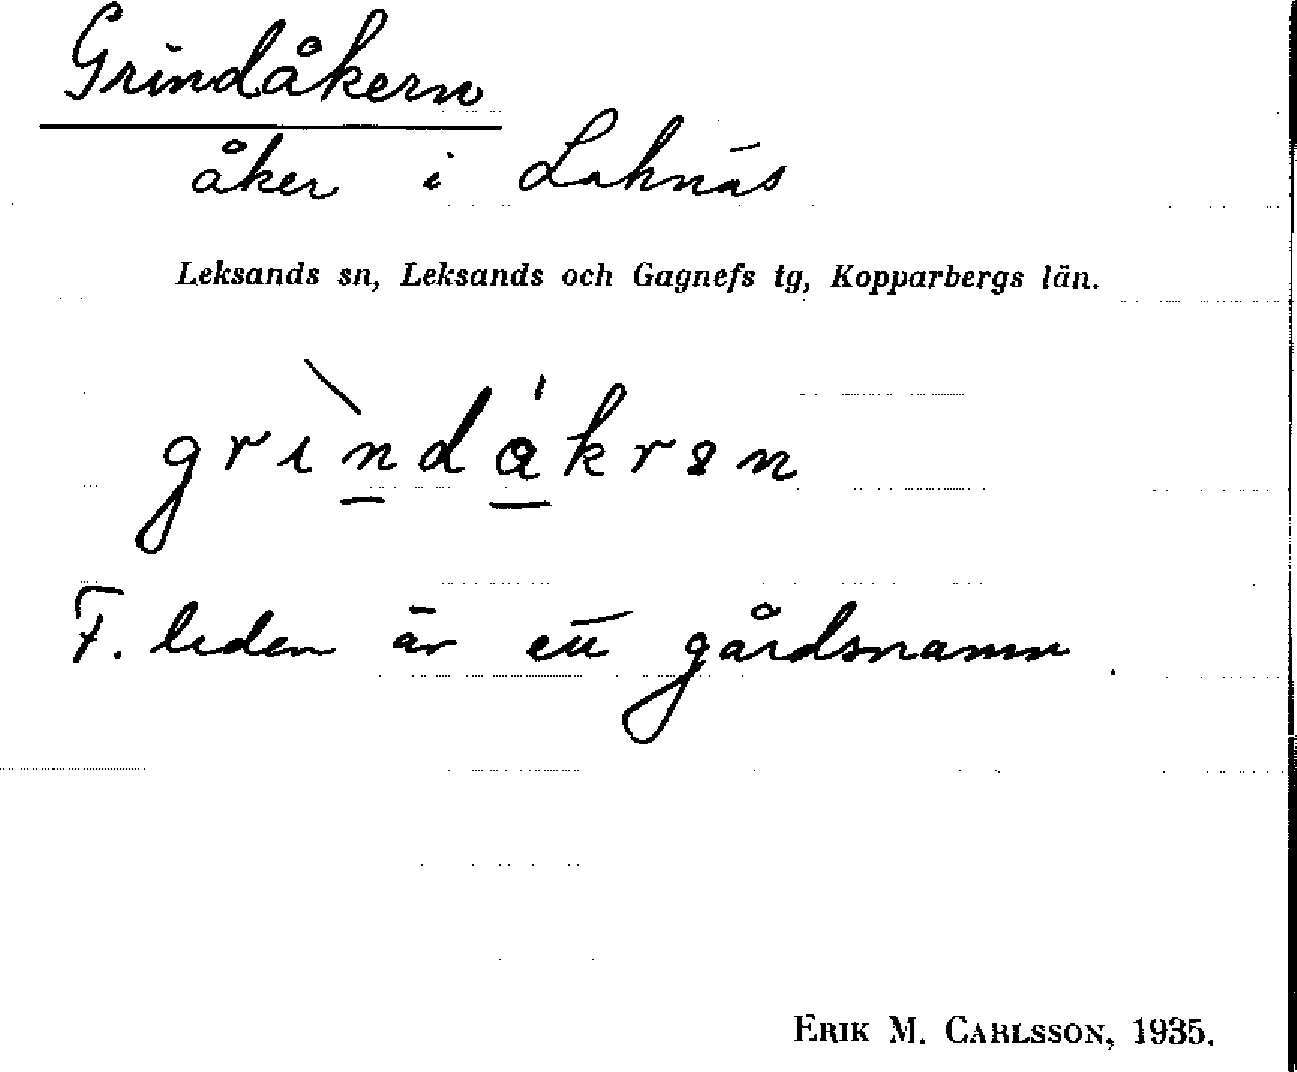 Grindåkern
åker i Laknäs
Leksands sn, Leksands och Gagnefs tg, Kopparbergs län.
F. leden är ett gårdsnamn.
ERIK M. CARLSSON, 1935.